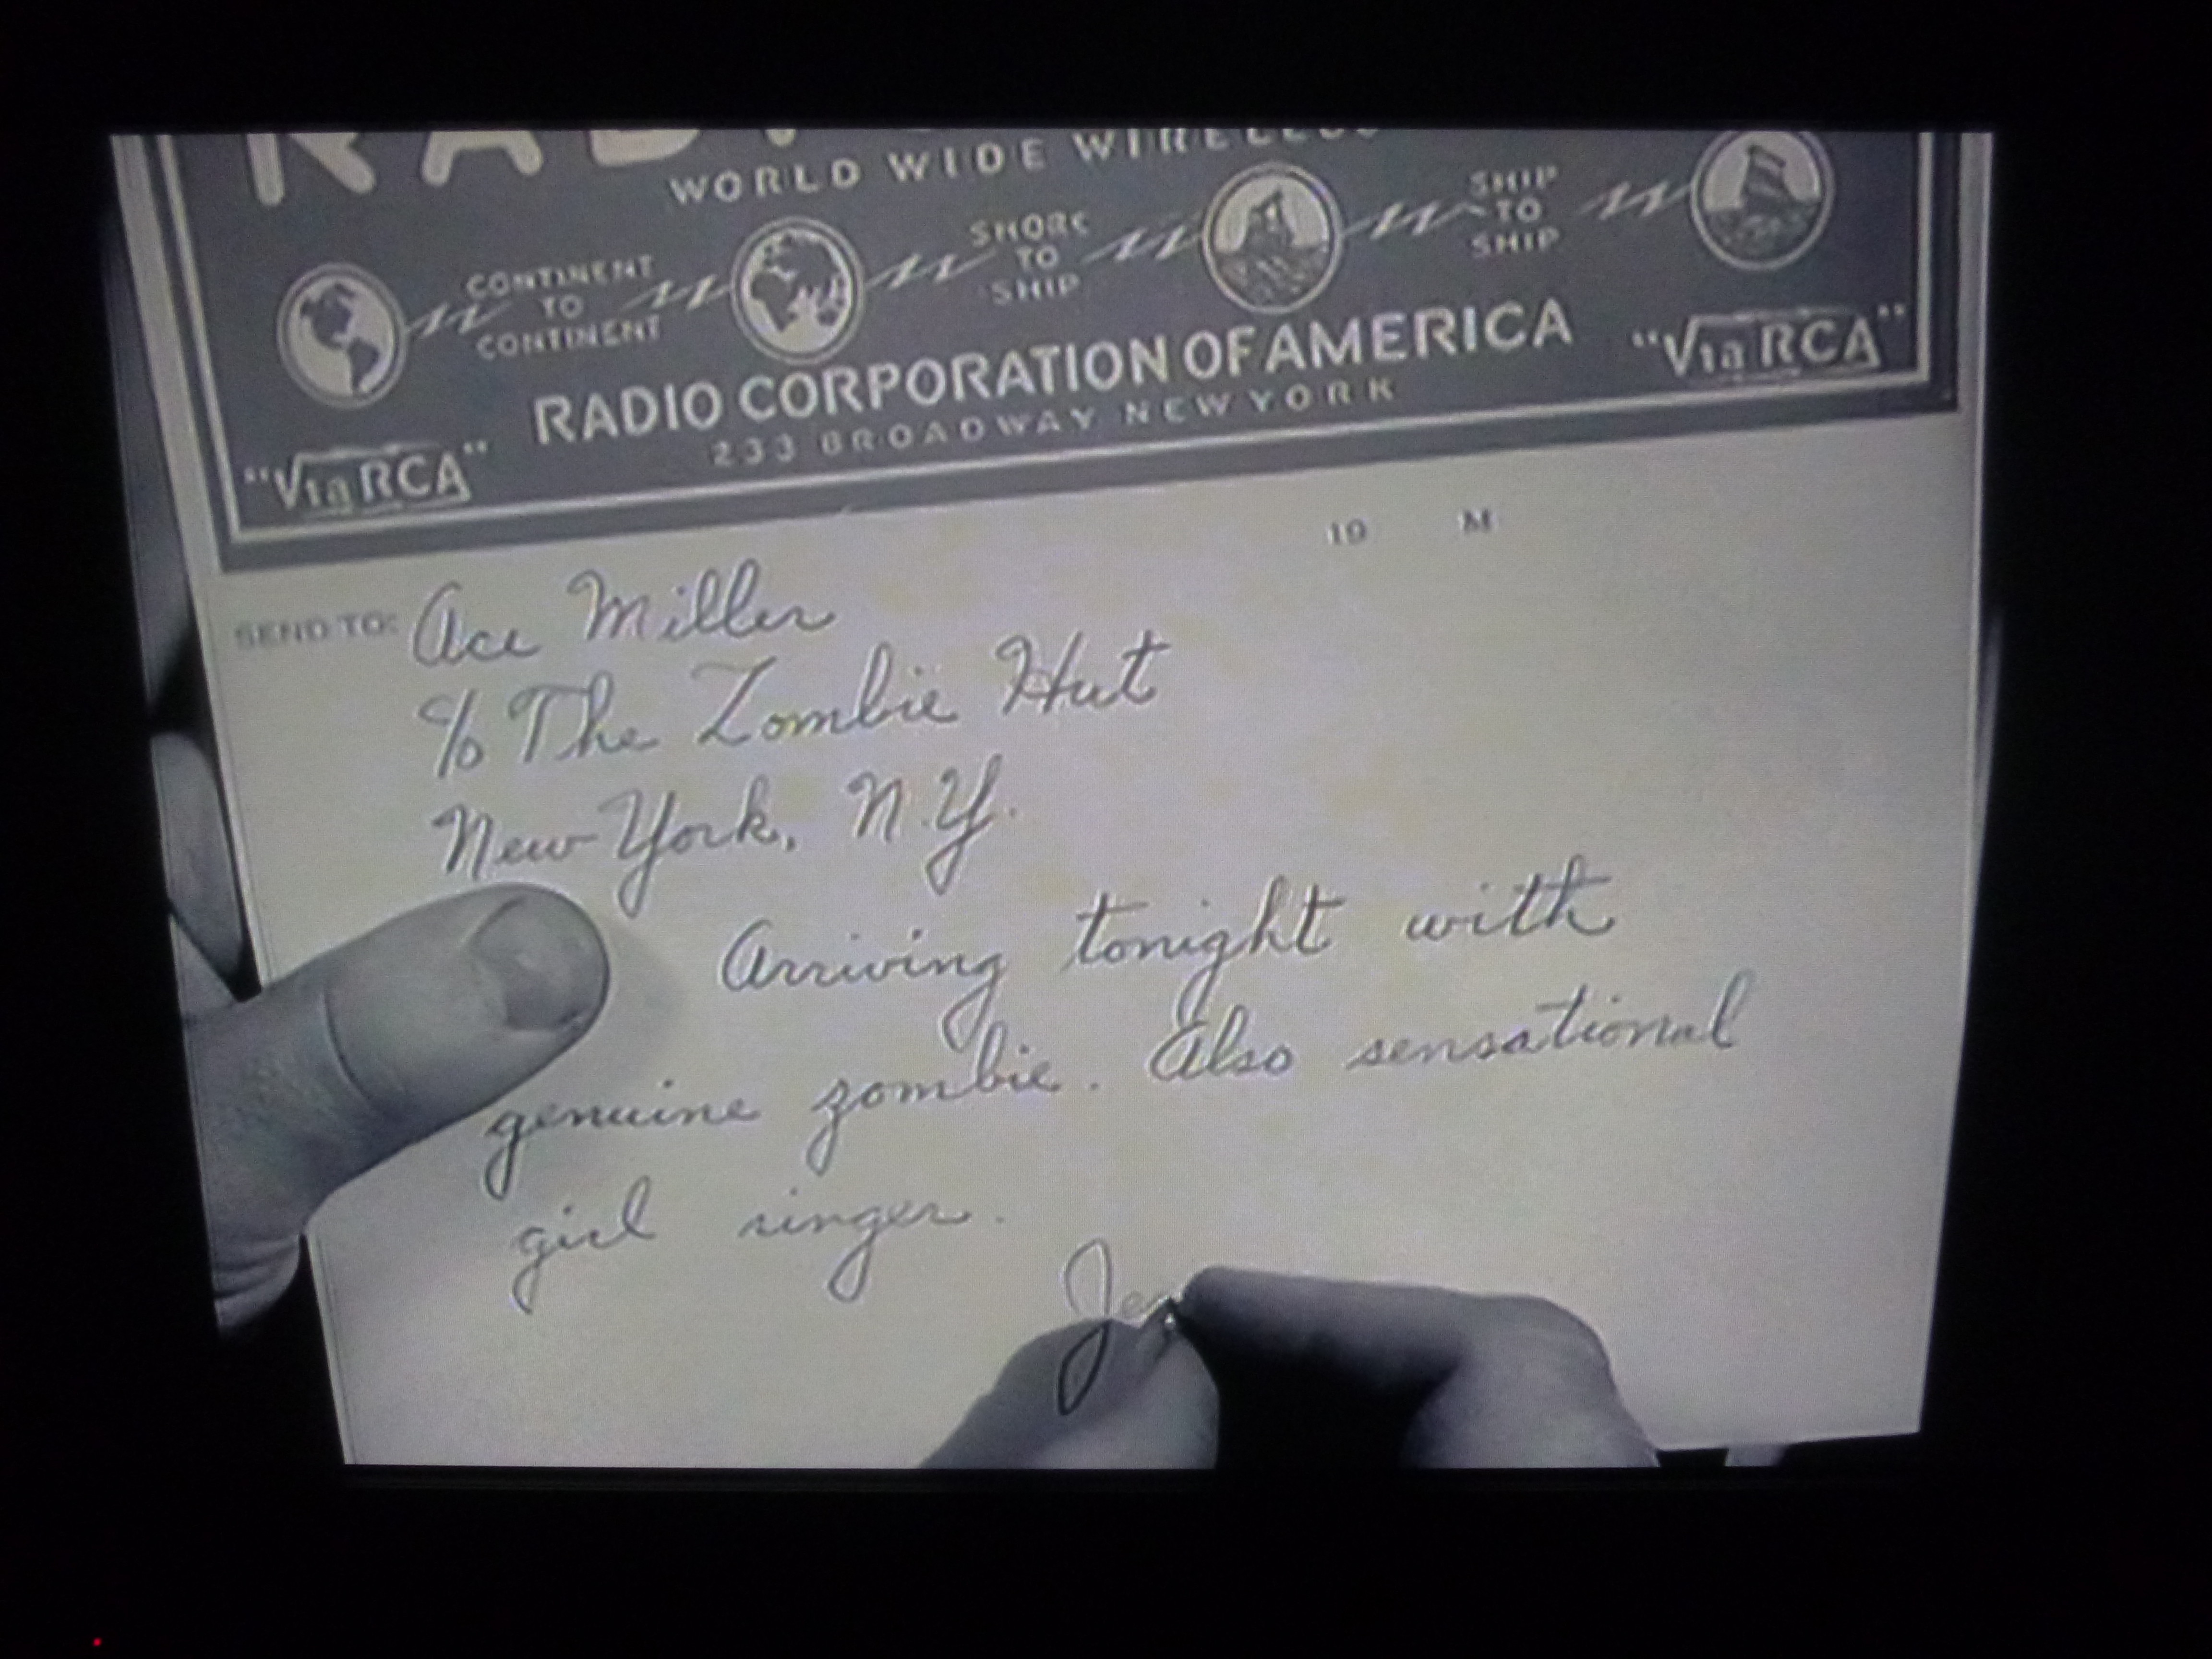 WORLD WIDE WIRELESS
CONTINENT
TO
CONTINENT
SHORE
TO
SHIP
SHIP
TO
SHIP
RADIO CORPORATION OF AMERICA
233 BROADWAY NEW YORK
"Via RCA"
"Via RCA"
19 M
SEND TO: Ace Miller
c/o The Zombie Hut
New York, N.Y.
Arriving tonight with
genuine zombie. Also sensational
girl singer.